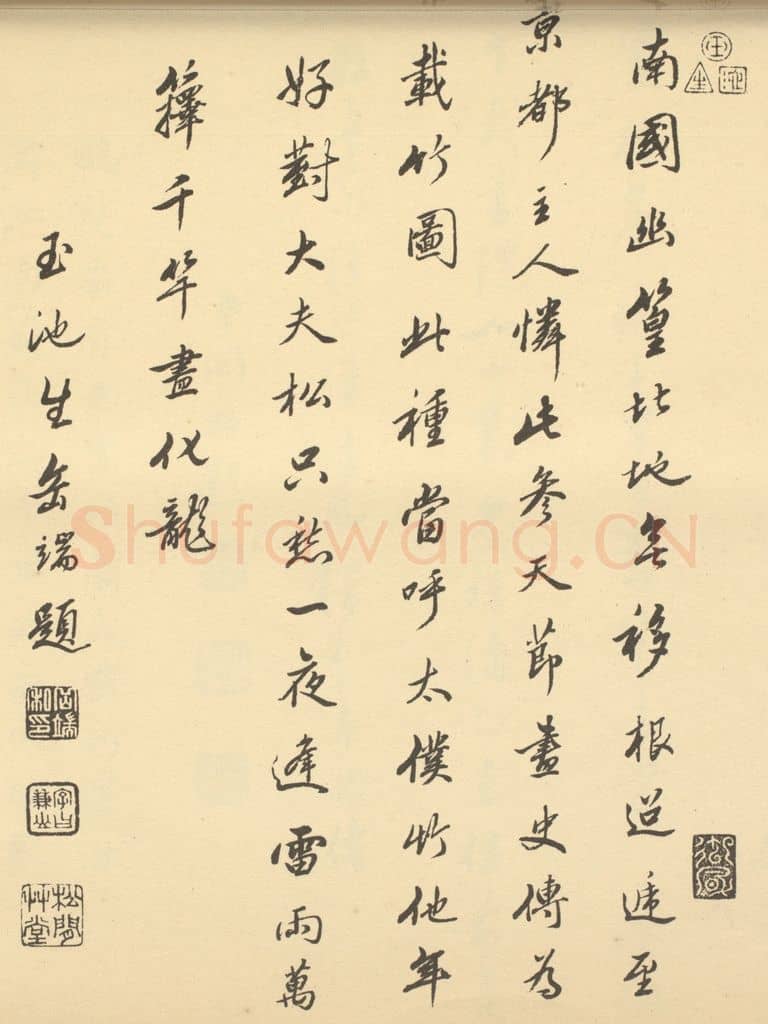 玉池生
南國幽篁北地無移根迢遞至
京都主人憐此參天節畫史傳為
載竹圖此種當呼太僕竹他年
好對大夫松只愁一夜逢雷雨萬
籜千竿盡化龍
玉池生岳端題
岳端私印
字曰兼山
松間草堂
Shufawang.CN